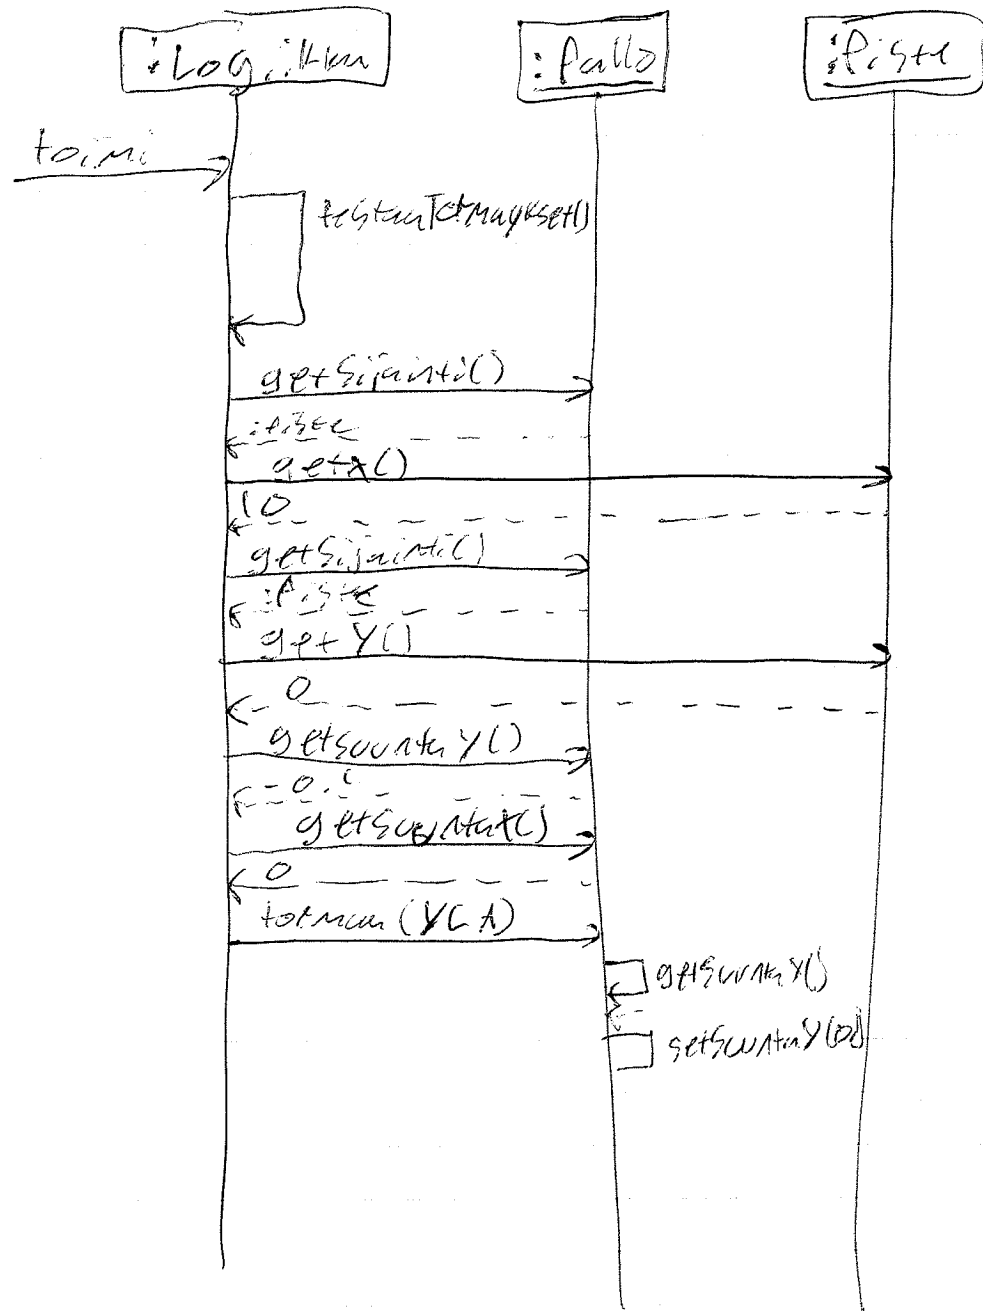 :Logiikka
:Pallo
:Piste
toimi
testaaTormaykset()
getSijainti()
:Piste
getX()
10
getSijainti()
:Piste
getY()
0
getSuuntaY()
-0.1
getSuuntaX()
0
tormaa(YLA)
getSuuntaY()
setSuuntaY(0.1)